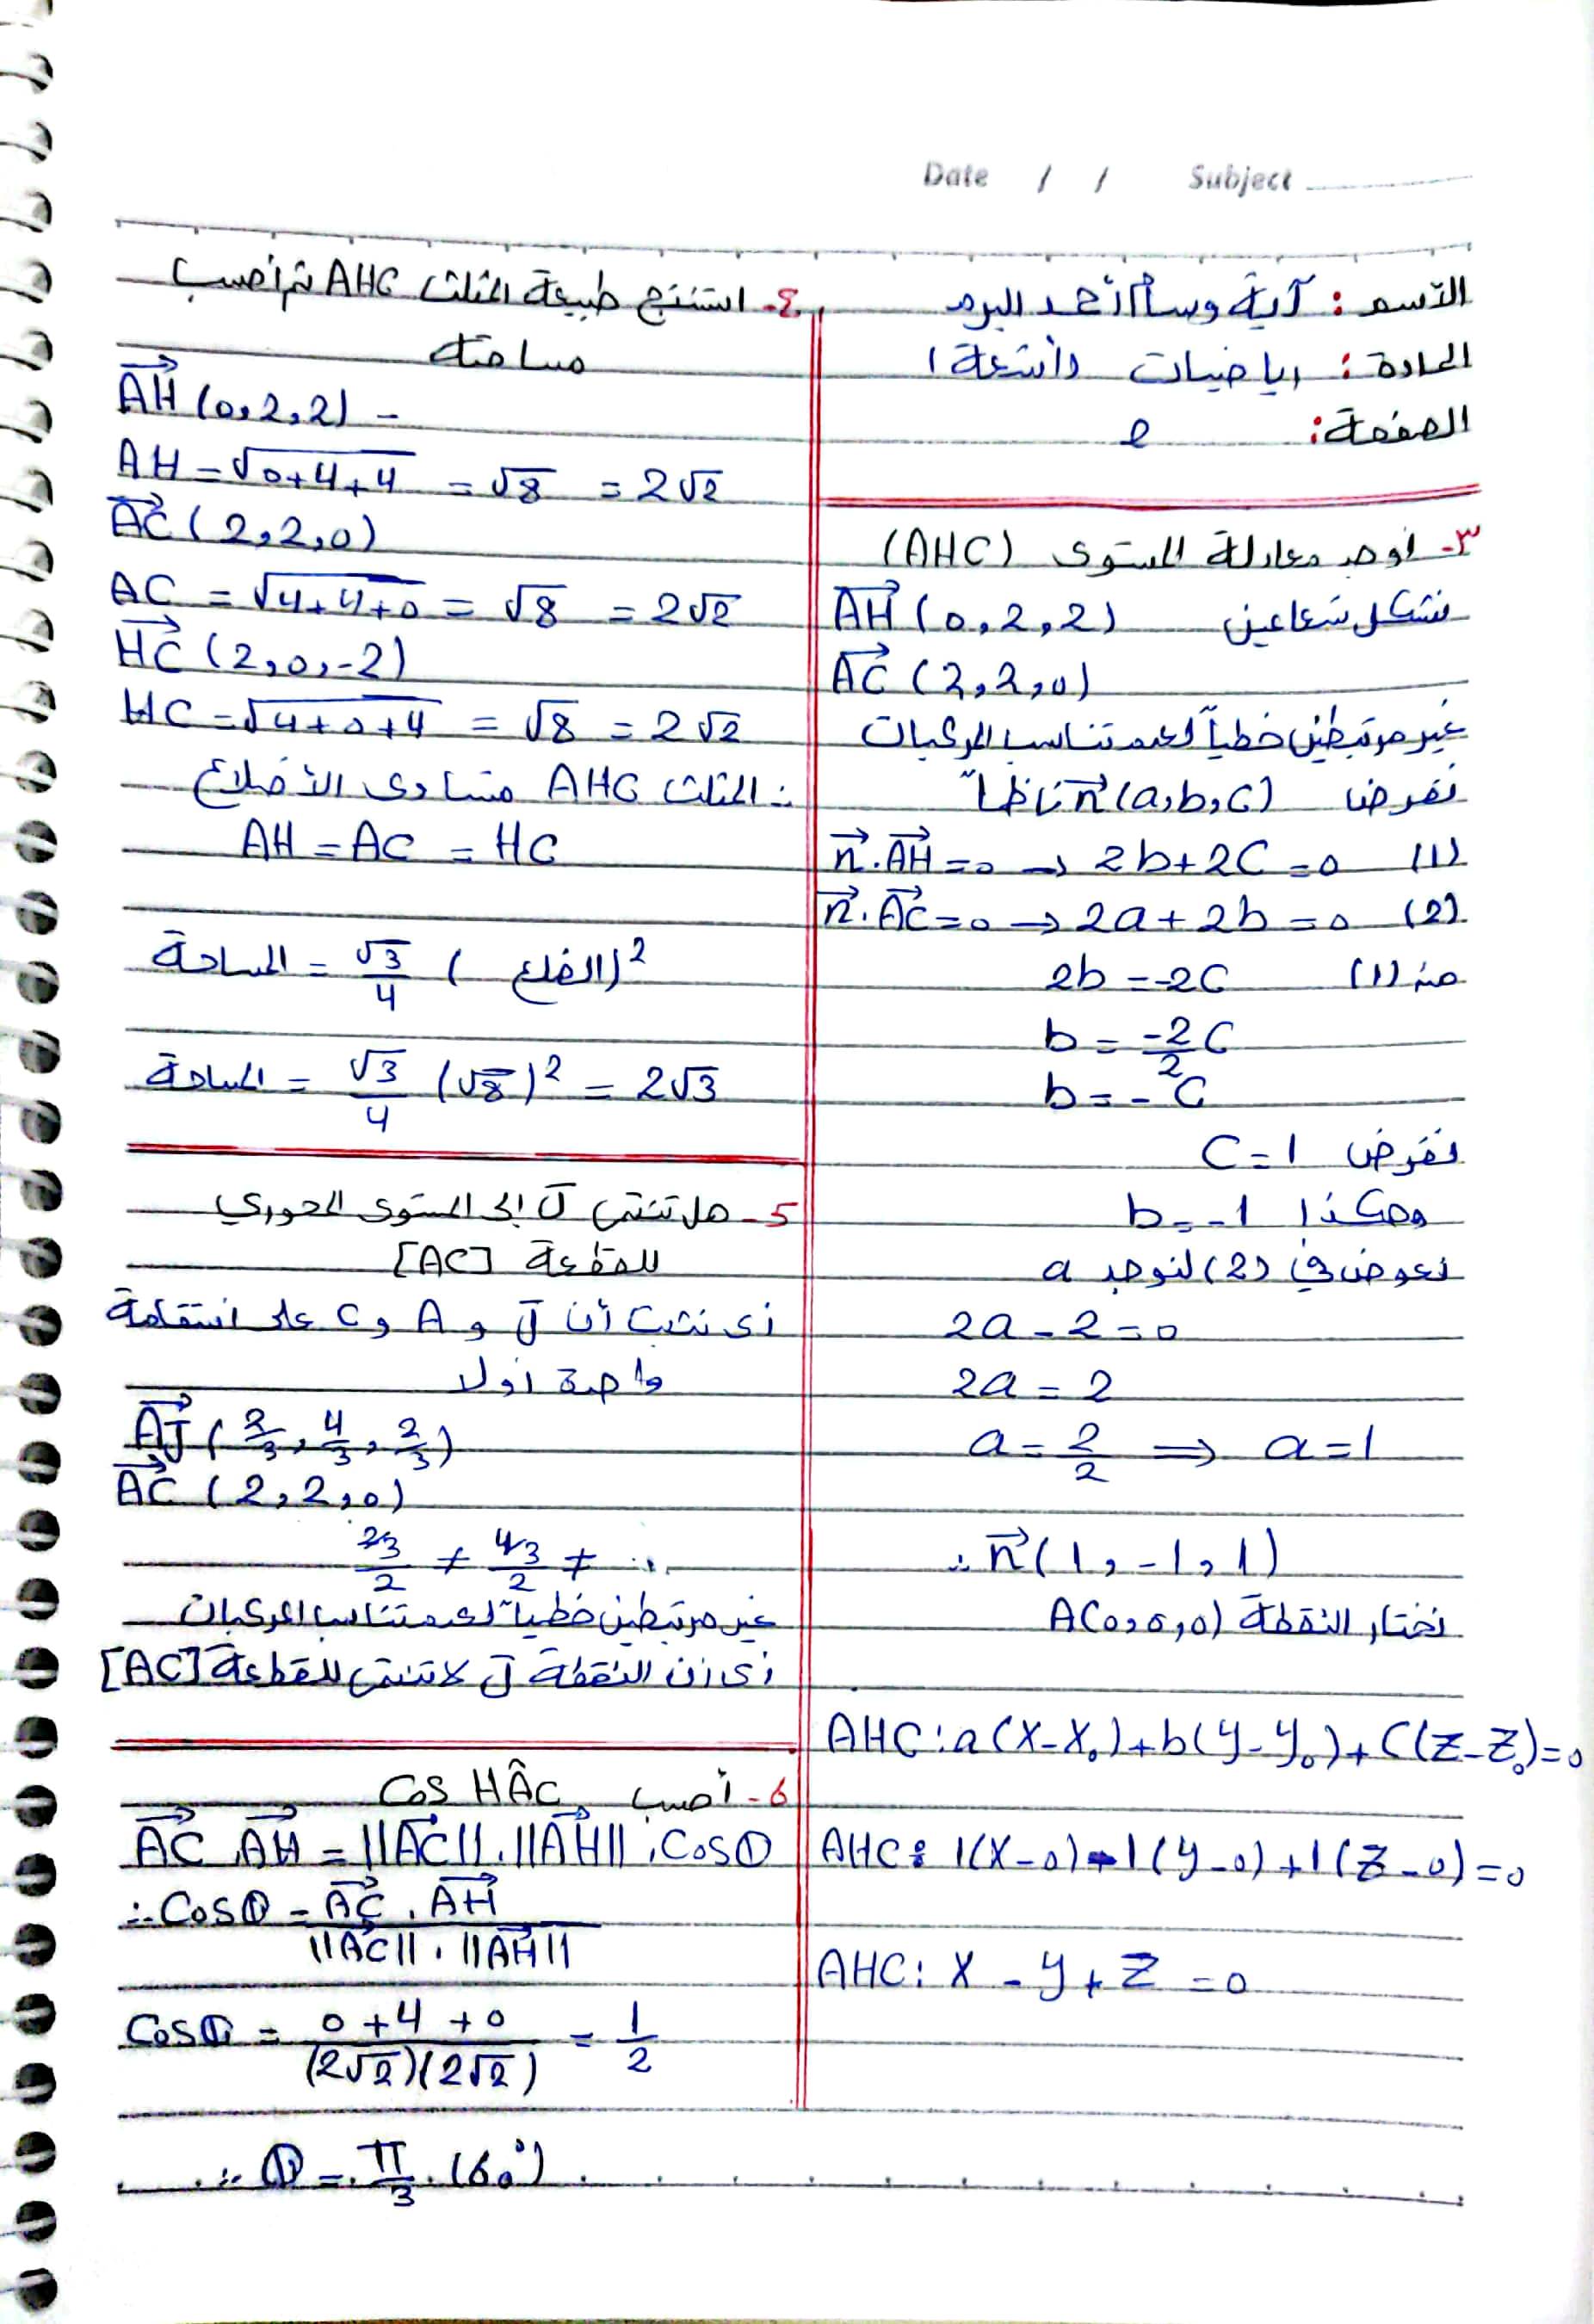 Date / / Subject
الآسم : آية وسام أحمد البرم
المادة : رياضيات وأشعة 1
الصفحة: 2
٣- أوجد معادلة المستوى (AHC)
نشكل شعاعين AH (0,2,2)
AC (2,2,0)
غير مرتبطين خطياً لعدم تناسب المركبات
نفرض n(a,b,c) ناظماً
n.AH=0 → 2b+2C=0 (1)
n.AC=0 → 2a+2b=0 (2)
من (1) 2b=-2C
b = -2/2 C
b = -C
نفرض C=1
وهكذا b=-1
نعوض في (2) لنوجد a
2a-2=0
2a=2
a = 2/2 ⇒ a=1
∴ n(1,-1,1)
نختار النقطة A(0,0,0)
AHC: a(x-x₀)+b(y-y₀)+C(z-z₀)=0
AHC: 1(x-0)-1(y-0)+1(z-0)=0
AHC: x-y+z=0
٤- استنتج طبيعة المثلث AHC ثم أحسب
مساحته
AH (0,2,2) -
AH = √0+4+4 = √8 = 2√2
AC (2,2,0)
AC = √4+4+0 = √8 = 2√2
HC (2,0,-2)
HC = √4+0+4 = √8 = 2√2
∴ المثلث AHC متساوي الأضلاع
AH = AC = HC
المساحة = √3/4 (الضلع)²
المساحة = √3/4 (√8)² = 2√3
5- هل تنتمي J إلى المستوى المحوري
للقطعة [AC]
أي نثبت أن J و A و C على استقامة
واحدة أولا
AJ (2/3, 4/3, 2/3)
AC (2,2,0)
2/3/2 ≠ 4/3/2 ≠ ...
غير مرتبطين خطياً لعدم تناسب المركبات
أي أن النقطة J لا تنتمي للقطعة [AC]
6- أحسب Cos HÂC
AC . AH = ||AC|| . ||AH|| . Cos θ
∴ Cos θ = AC . AH / ||AC|| . ||AH||
Cos θ = 0+4+0 / (2√2)(2√2) = 1/2
∴ θ = π/3 (60°)